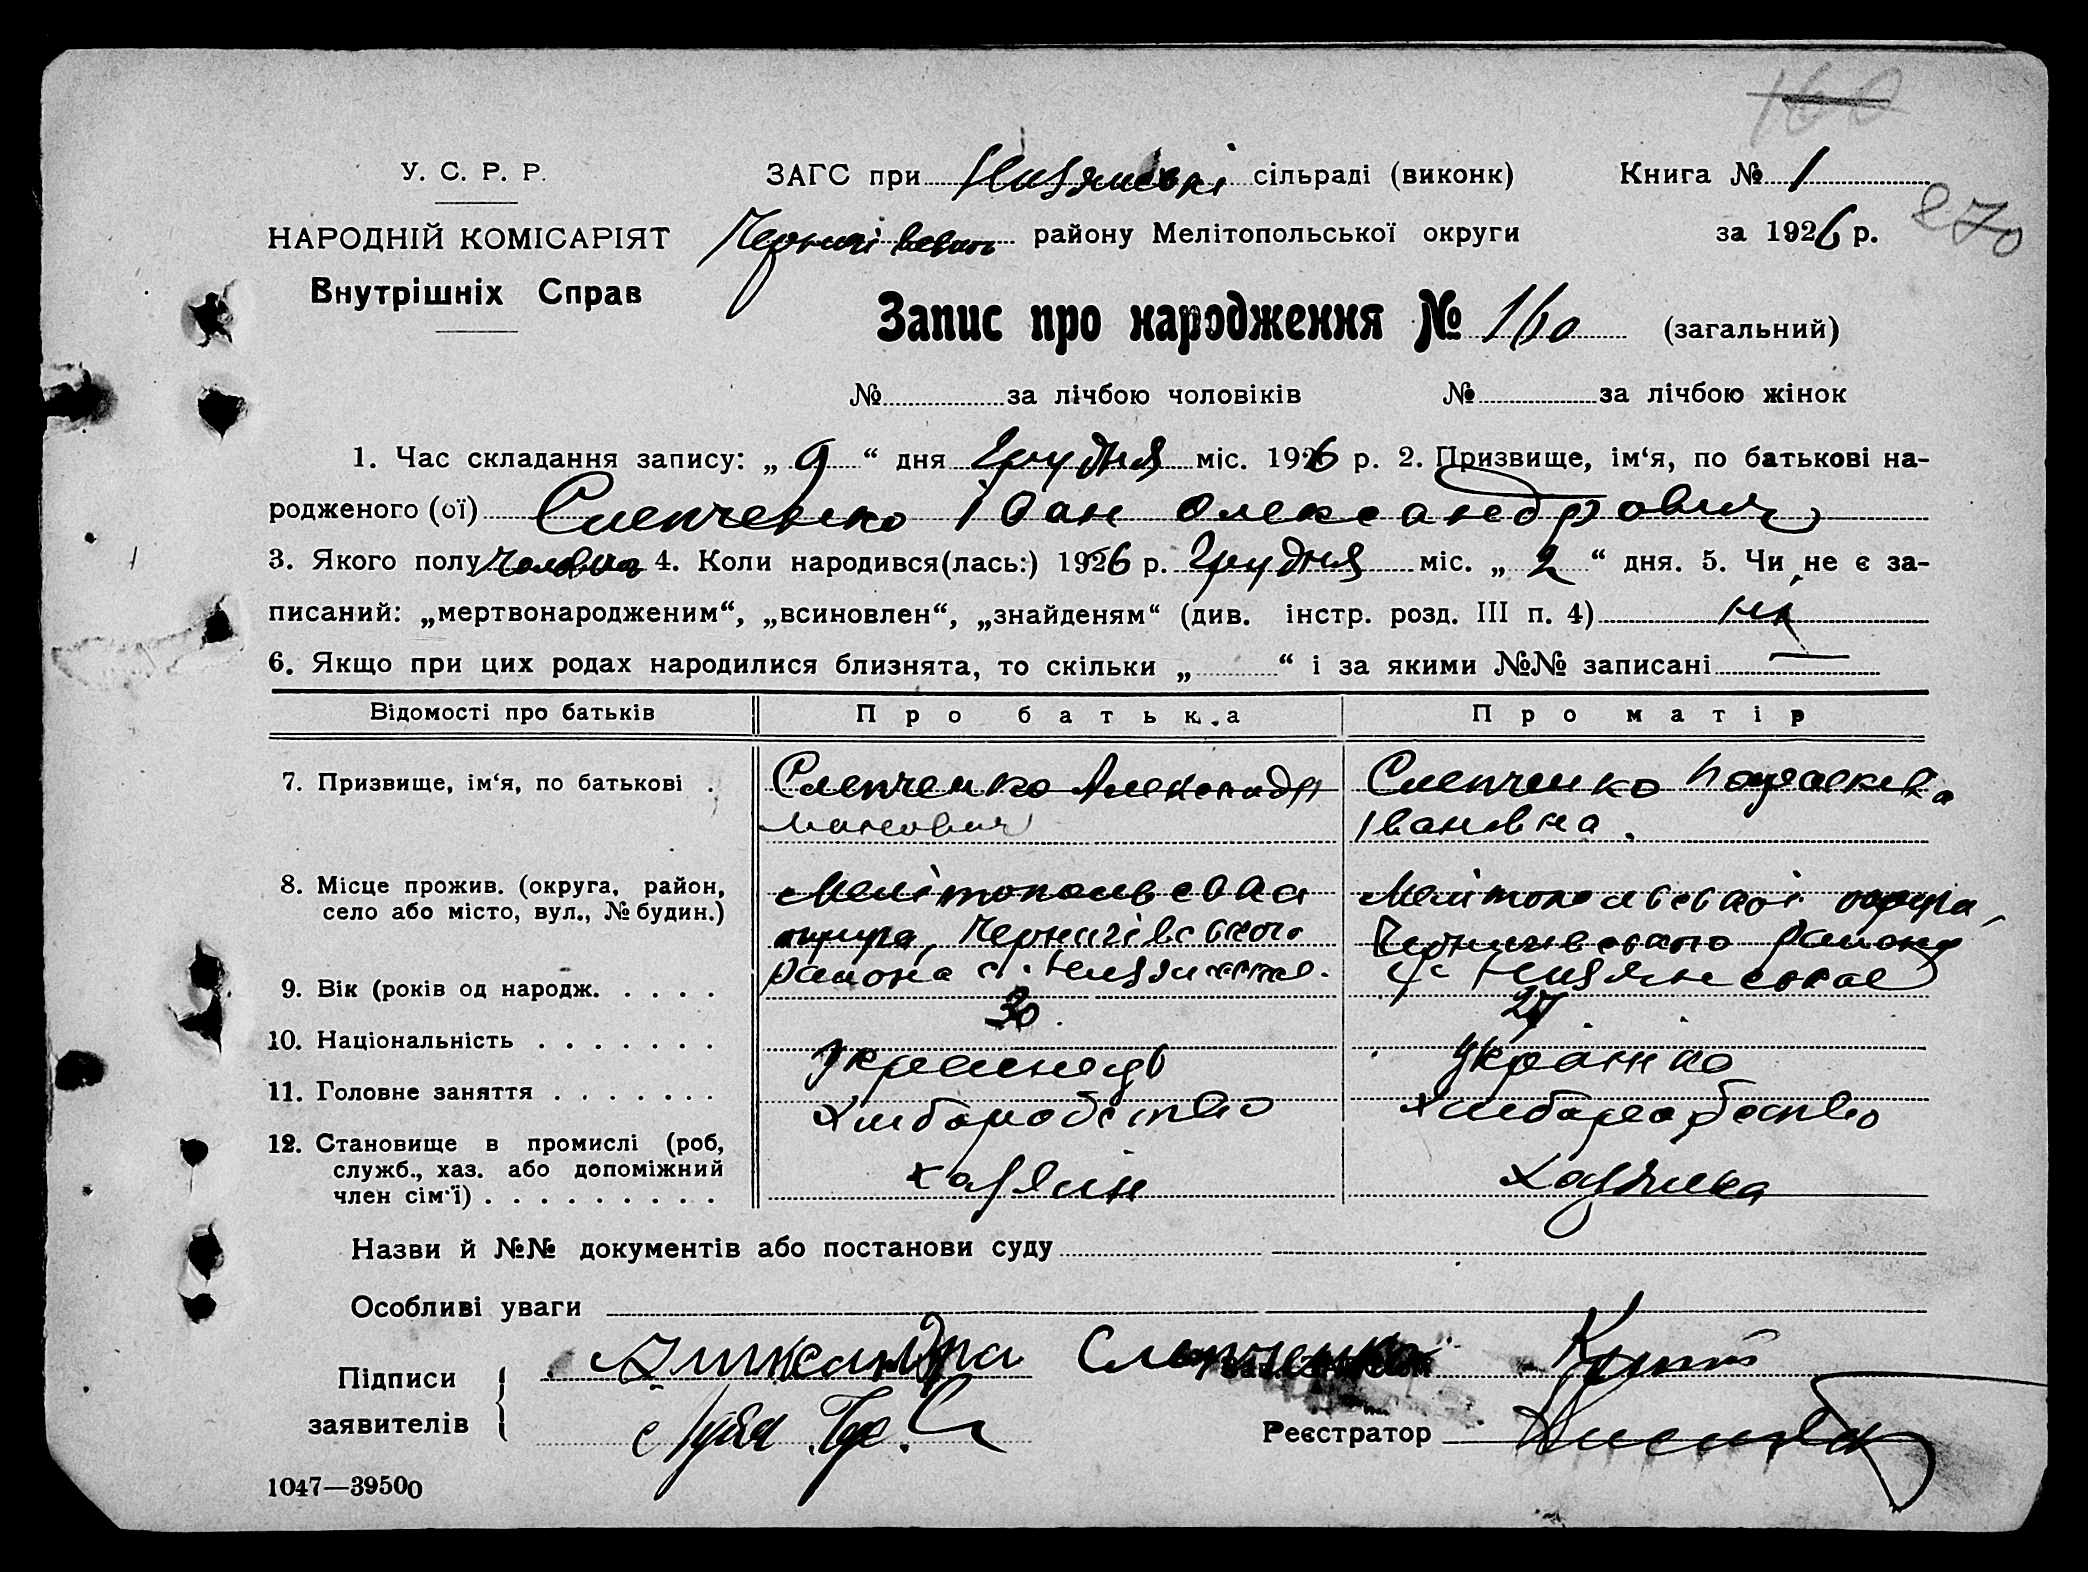 160
У. С. Р. Р. ЗАГС при сільраді (виконк) Книга № 1
270
НАРОДНІЙ КОМІСАРІЯТ району Мелітопольської округи за 1926 р.
Внутрішніх Справ
Запис про народження № 160 (загальний)
№ за лічбою чоловіків № за лічбою жінок
1. Час складання запису: „ 9 “ дня Грудня міс. 1926 р. 2. Призвище, ім‘я, по батькові на-
родженого (ої) Слепченко Іван Олександрович
3. Якого полу 4. Коли народився(лась:) 1926 р. Грудня міс. „ 2 “ дня. 5. Чи не є за-
писаний: „мертвонародженим“, „всиновлен“, „знайденям“ (див. інстр. розд. III п. 4) ні
6. Якщо при цих родах народилися близнята, то скільки „ “ і за якими №№ записані —
Відомості про батьків Про батька Про матір
7. Призвище, ім‘я, по батькові . Слепченко Александр Слепченко Параскева
Івановна.
8. Місце прожив. (округа, район, Мелітопольська Мелітопольської округи,
село або місто, вул., № будин.) округа, Чернигівського Чернигівського района
района с.
9. Вік (років од народж. . . . . 30 27
10. Національність . . . . . . . Українець Українка
11. Головне заняття . . . . . . . Хлиборобство Хлиборобство
12. Становище в промислі (роб,
служб., хаз. або допоміжний Хазяин Хазяйка
член сім‘ї) . . . . . . . . .
Назви й №№ документів або постанови суду
Особливі уваги
Підписи Слепченко
заявителів Реєстратор
1047—39500